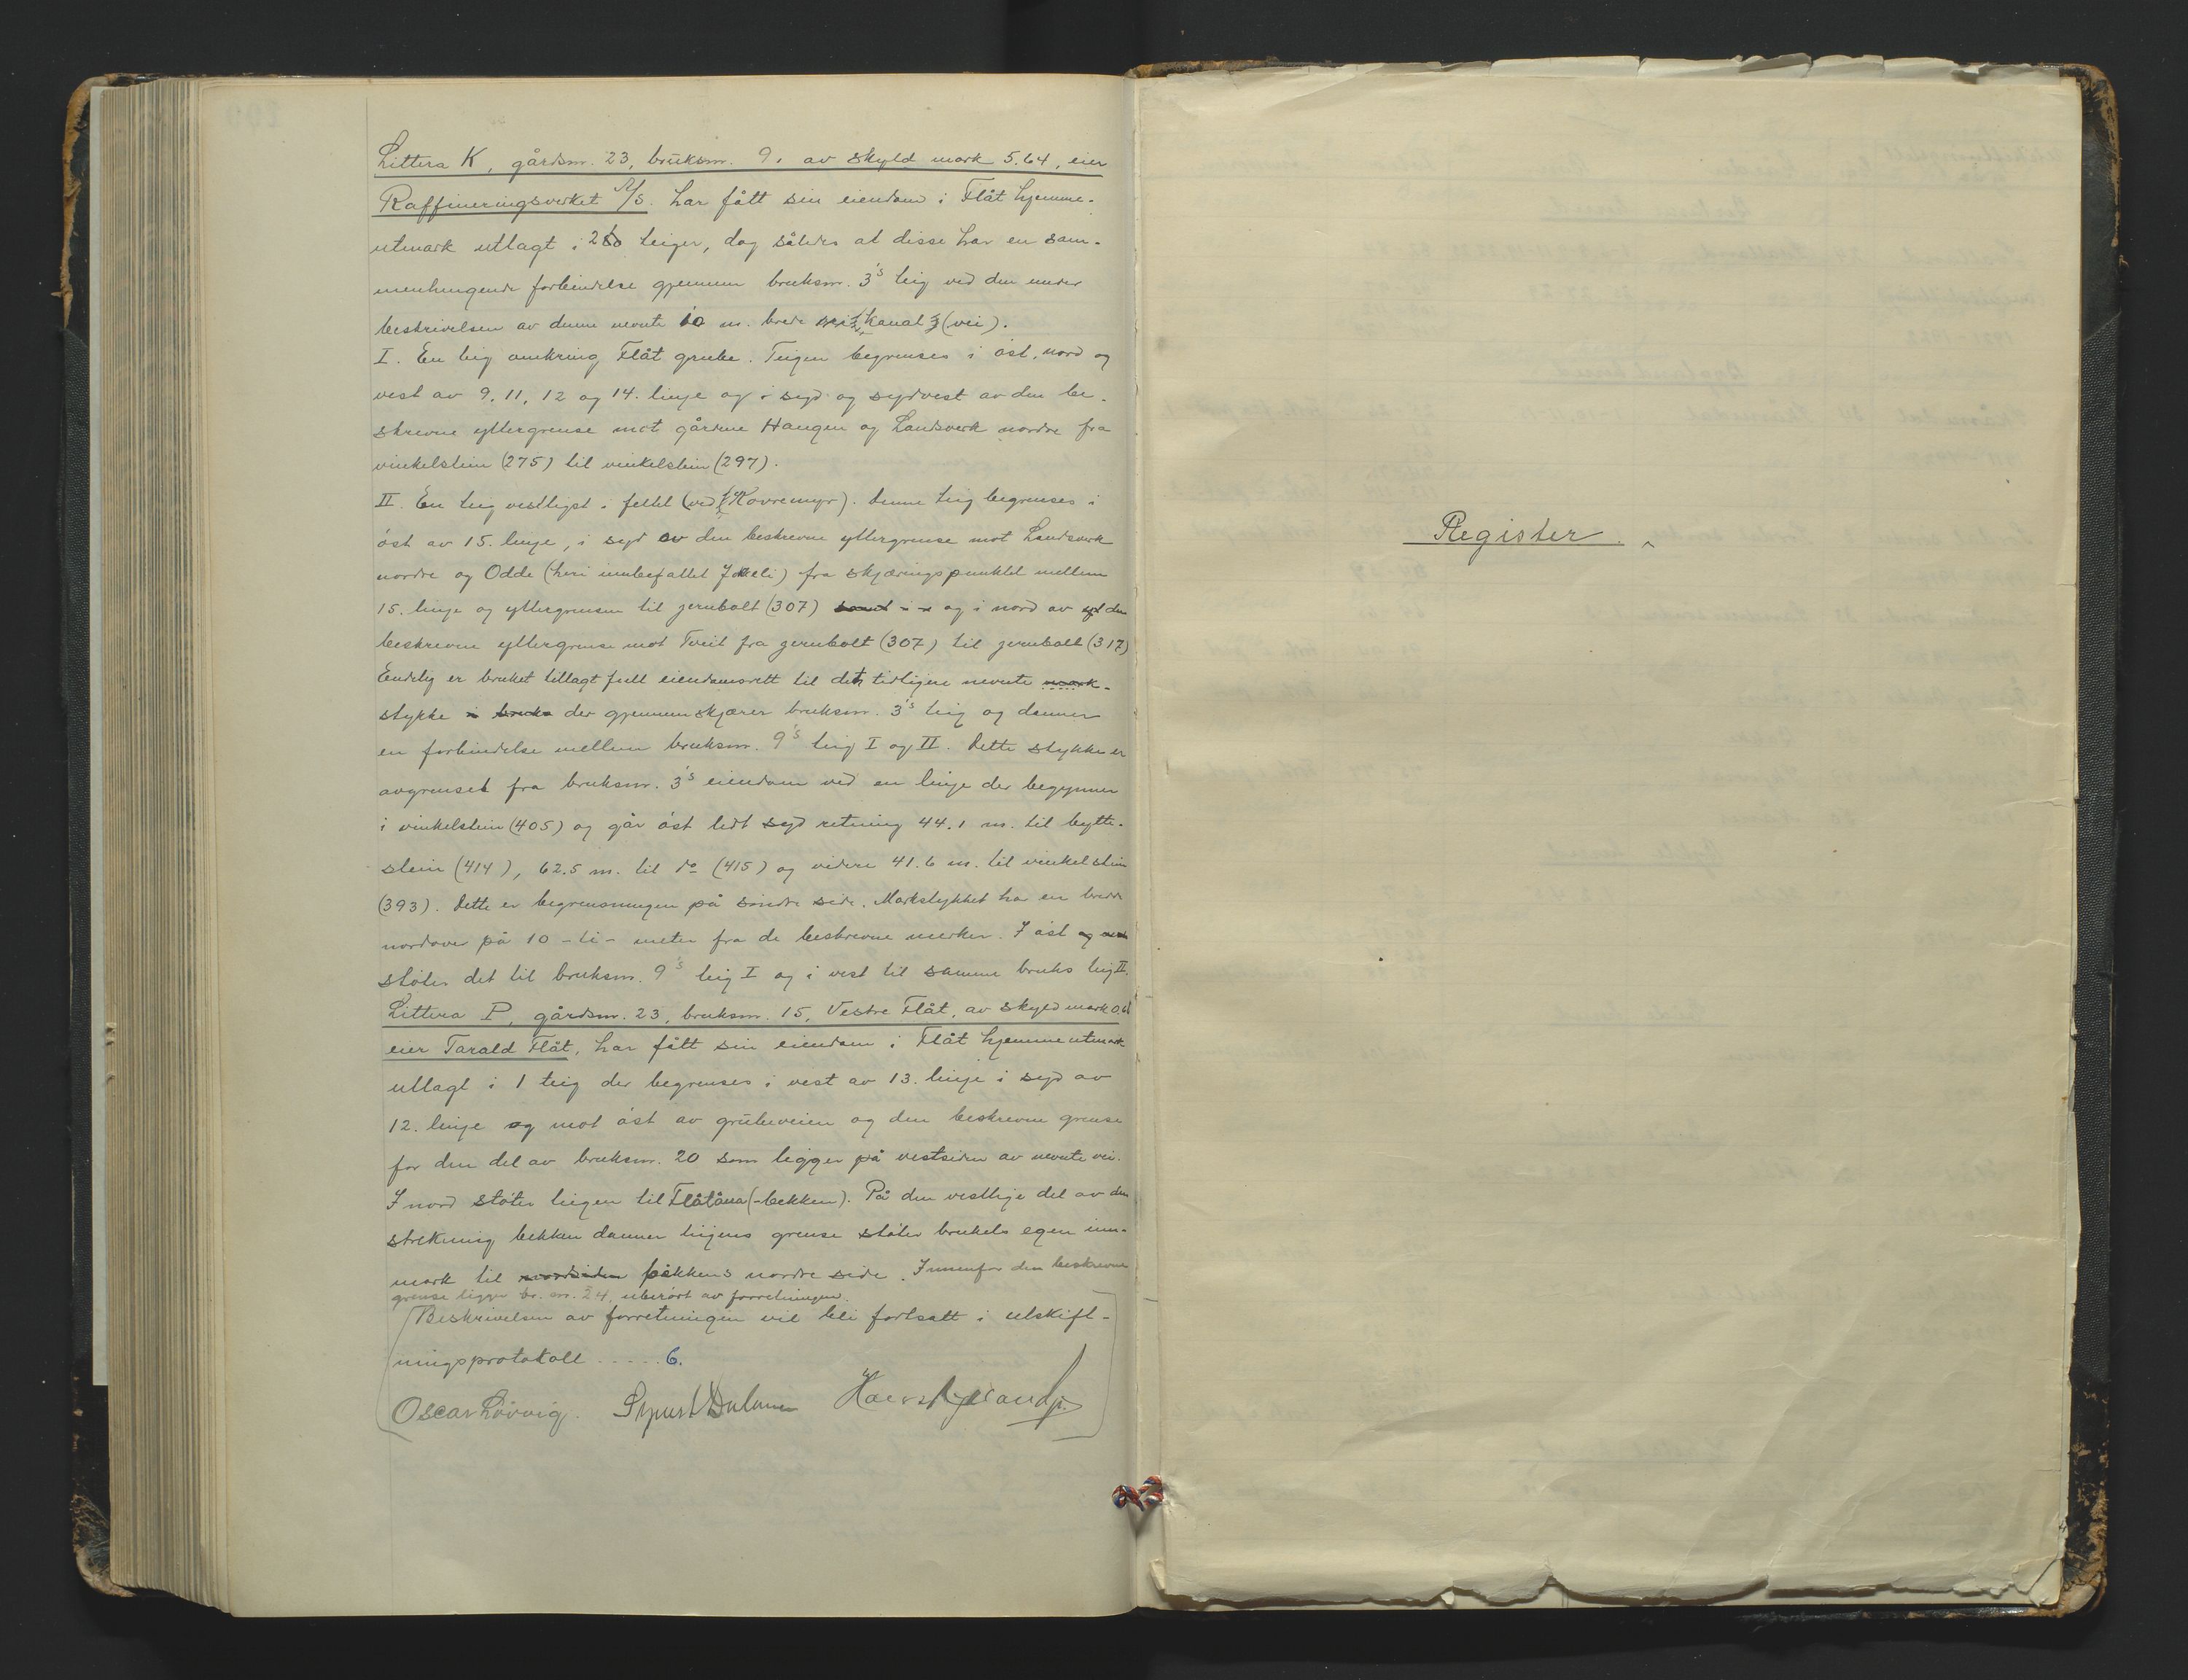 Littera K, gårdsnr. 23, bruksnr. 9, av skyld mark 5.64, eier
Raffineringsverket A/S. har fått sin eiendom i Flåt hjemme-
utmark utlagt i 2 to teiger, dog således at disse har en sam-
menhengende forbindelse gjennem bruksnr. 3's teig ved den under
beskrivelsen av denne nevnte 10 m. brede kanal (vei).
I. En teig omkring Flåt grube. Teigen begrenses i øst, nord og
vest av 9, 11, 12 og 14. linje og i syd og sydvest av den be-
skrevne yttergrense mot gårdene Haugen og Landsverk nordre fra
vinkelstein (275) til vinkelstein (297).
II. En teig vestligst i feltet (ved Hovremyr). Denne teig begrenses i
øst av 15. linje, i syd av den beskrevne yttergrense mot Landsverk
nordre og Odde (heri innbefattet Jokeli) fra skjæringspunktet mellem
15. linje og yttergrensen til jernbolt (307) samt i og i nord av den
beskrevne yttergrense mot Tveit fra jernbolt (307) til jernbolt (317)
Endelig er bruket tillagt full eiendomsrett til det tidligere nevnte mark-
stykke i bruks der gjennemskjærer bruksnr. 3's teig og danner
en forbindelse mellem bruksnr. 9's teig I og II. Dette stykke er
avgrenset fra bruksnr. 3's eiendom ved en linje der begynner
i vinkelstein (405) og går øst ledt syd retning 44.1 m. til bytte-
stein (414), 62.5 m. til do (415) og videre 41.6 m. til vinkelstein
(393). Dette er begrensningen på søndre side. Markstykket har en bredde
nordover på 10 - ti - meter fra de beskrevne merker. I øst og
støter det til bruksnr. 9's teig I og i vest til samme bruks teig II.
Littera P, gårdsnr. 23, bruksnr. 15, Vestre Flåt, av skyld mark 0.61
eier Tarald Flåt, har fått sin eiendom i Flåt hjemmeutmark
utlagt i 1 teig der begrenses i vest av 13. linje i syd av
12. linje og mot øst av grubeveien og den beskrevne grense
for den del av bruksnr. 20 som ligger på vestsiden av nevnte vei.
I nord støter teigen til Flåtåna (-bekken). På den vestlige del av den
strekning bekken danner teigens grense støter brukets egen inn-
mark til nordsiden bekkens nordre side. Innenfor den beskrevne
grense ligger br. nr. 24, uberørt av forretningen.
Beskrivelsen av forretningen vil bli fortsatt i utskift-
ningsprotokoll ..... 6.
Oscar Løvvig.
Register.